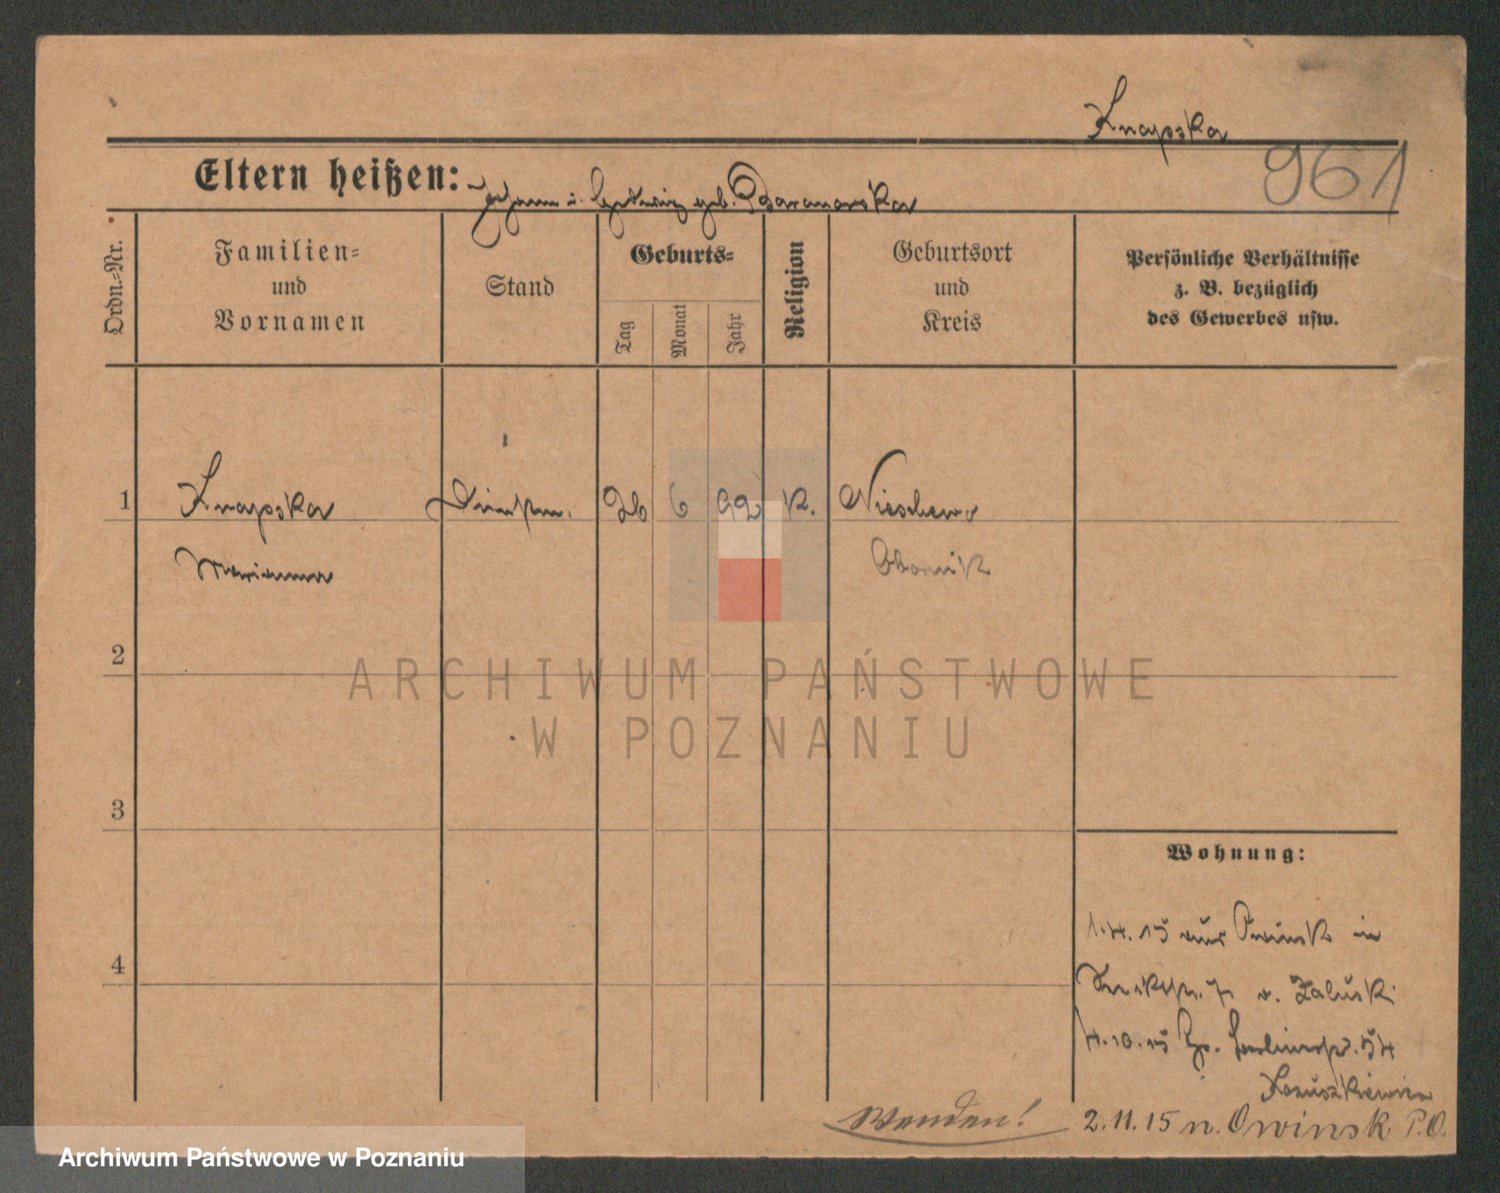 Knapska
961
Eltern heißen: Johann u. Hedwig geb. Baranowska
Ordn.-Nr.
Familien-
und
Vornamen
Stand
Geburts-
Tag
Monat
Jahr
Religion
Geburtsort
und
Kreis
Persönliche Verhältnisse
z. B. bezüglich
des Gewerbes usw.
1 Knapska Dienstm. 26 6 92 K.
Marianna Obornik
2
3
4
Wohnung:
1.4.15 aus Owinsk in
7 v. Zaluski
4.10.15 54
2.11.15 n. Owinsk P.O.
Wenden!
ARCHIWUM PAŃSTWOWE
W POZNANIU
Archiwum Państwowe w Poznaniu